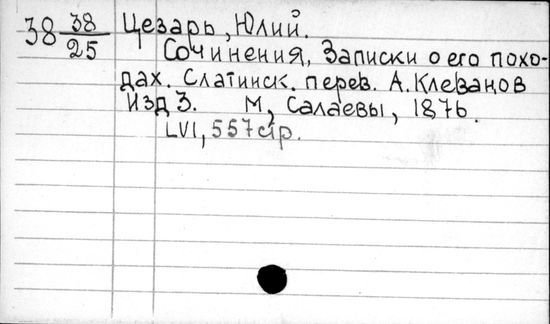 38 38/25 Цезарь, Юлий.
Сочинения, Записки о его похо-
дах. Слатинск. перев. А. Клеванов
Изд 3. М, Салаевы, 1876.
LVI, 557 стр.